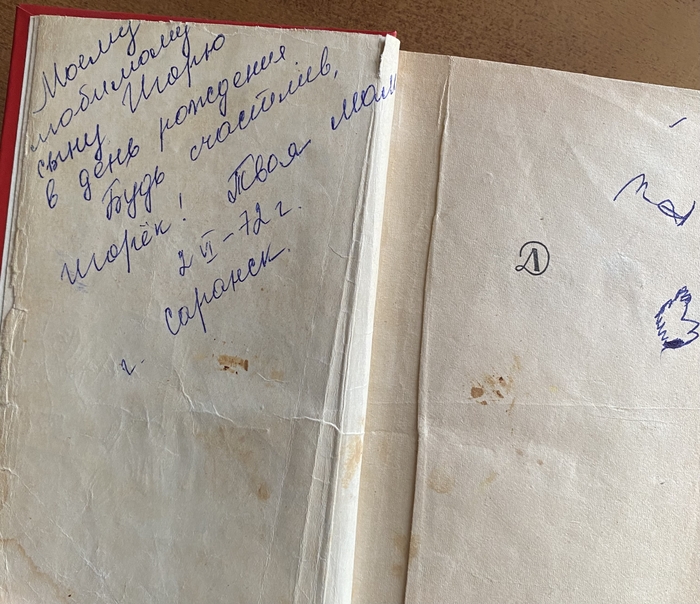 Моему
любимому
сыну Игорю
в день рождения.
Будь счастлив,
Игорёк! Твоя мам
2 VI – 72 г.
г. Саранск.
Д